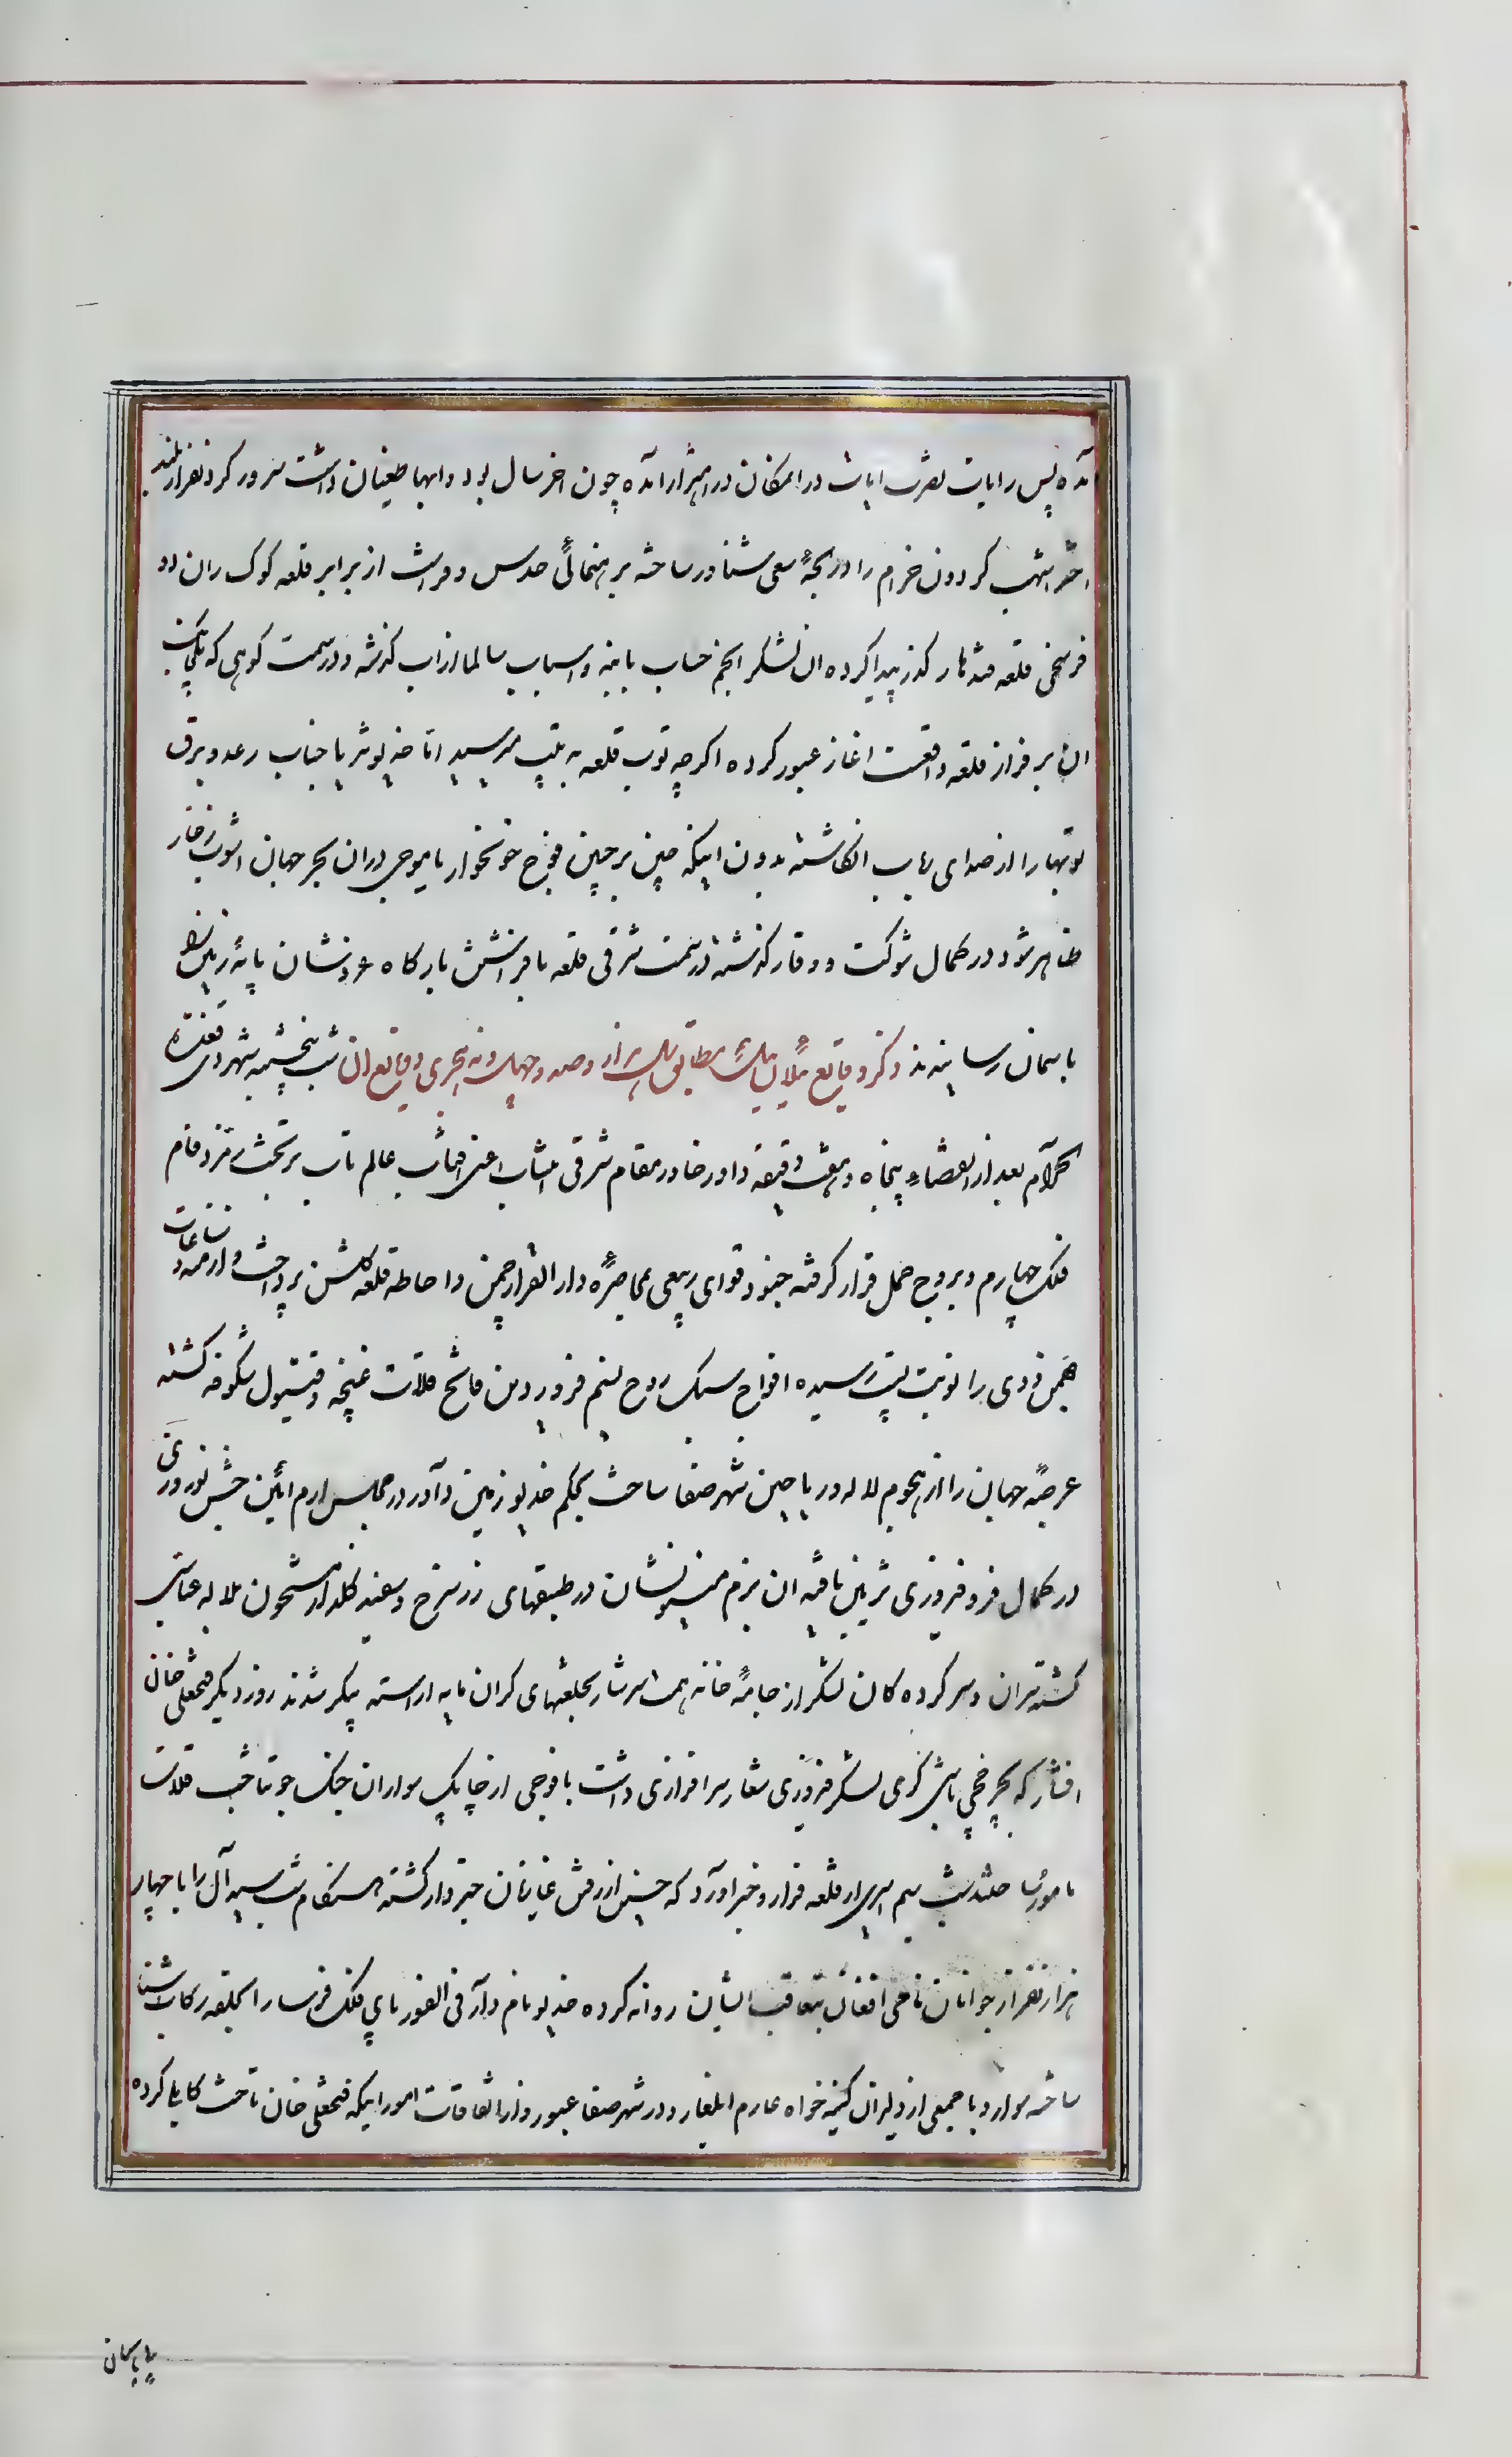 آمده پس رایات نصرت ایات در امکان در اهتزاز آمده چون اخر سال بود و ابها طغیان داشت سرور کردنفراز بلند
اختر اشهب کردون خرام را در لجهٔ سعی شناور ساخته برهنمائی حدس و فراست از برابر قلعه کوک ران دو
فرسخی قلعه قندهار کذر پیدا کرده ان لشکر انجم حساب با بنه و اسباب سالما از اب کذشته و در سمت کوهی که یکی از
ان بر فراز قلعه واقعست اغاز عبور کرده اکرچه توب قلعه به تیپ میرسید اما خدیو ثریا جناب رعد و برق
توبها را از صدای رباب انکاشته بدون اینکه چین بر جبین فوج خونخوار یا موجی دران بحر جهان اشوب زخار
ظاهر شود در کمال شوکت و وقار کذشته در سمت شرقی قلعه بافراشتن بارکاه عز و شان پایهٔ زمین را
باسمان رسانیدند ذکر وقایع ئیلان ئیل مطابق هزار و صد و چهل و نه هجری وقایع ان شب پنجشنبه شهر ذی قعده
الحرام بعد از انقضاء پنجاه و هفت دقیقه داور خاور مقام شرقی انتساب اعنی افتاب عالم تاب بر تخت زمرد فام
فلک چهارم و بروج حمل قرار کرفته جنود قوای ربیعی بمحاصرهٔ دار القرار چمن و احاطه قلعه کلشن پرداخت و از صدمه
بهمن و دی را نوبت پستی رسیده افواج سبک روح نسیم فروردین فاتح قلات غنچه و قیتول شکوفه کشته
عرصهٔ جهان را از هجوم لاله و ریاحین شهر صفا ساخت بحکم خدیو زمین داور در مجلس ارم ائین جشن نوروزی
در کمال فر و فیروزی تزیین یافته ان بزم مینونشان در طبقهای زر سرخ و سفید کلدار مشحون بلاله عباسی
کشته سران و سرکرده کان لشکر از جامهٔ خانه همت سرشار بخلعتهای کران مایه اراسته پیکر شدند روز دیکر فتحعلی خان
افشار که بچرخچی باشی کری لشکر فیروزی شعار سرافرازی داشت با فوجی از چابک سواران جنک جو تاخت قلات
مامور ساختند شب سیم اسیری از قلعه فرار و خبر اورد که حسین از رفتن غازیان خبردار کشته هنکام شب سیدال را با چهار
هزار نفر از جوانان نامی افغان بتعاقب ایشان روانه کرده خدیو نامدار فی الفور پای فلک فرسا را بحلقه رکاب اشنا
ساخته سوار و با جمعی از دلیران کینه خواه عازم ایلغار و در شهر صفا عبور و از اتفاقات امور اینکه فتحعلی خان تاخت کابلی کرده
بپاسبان